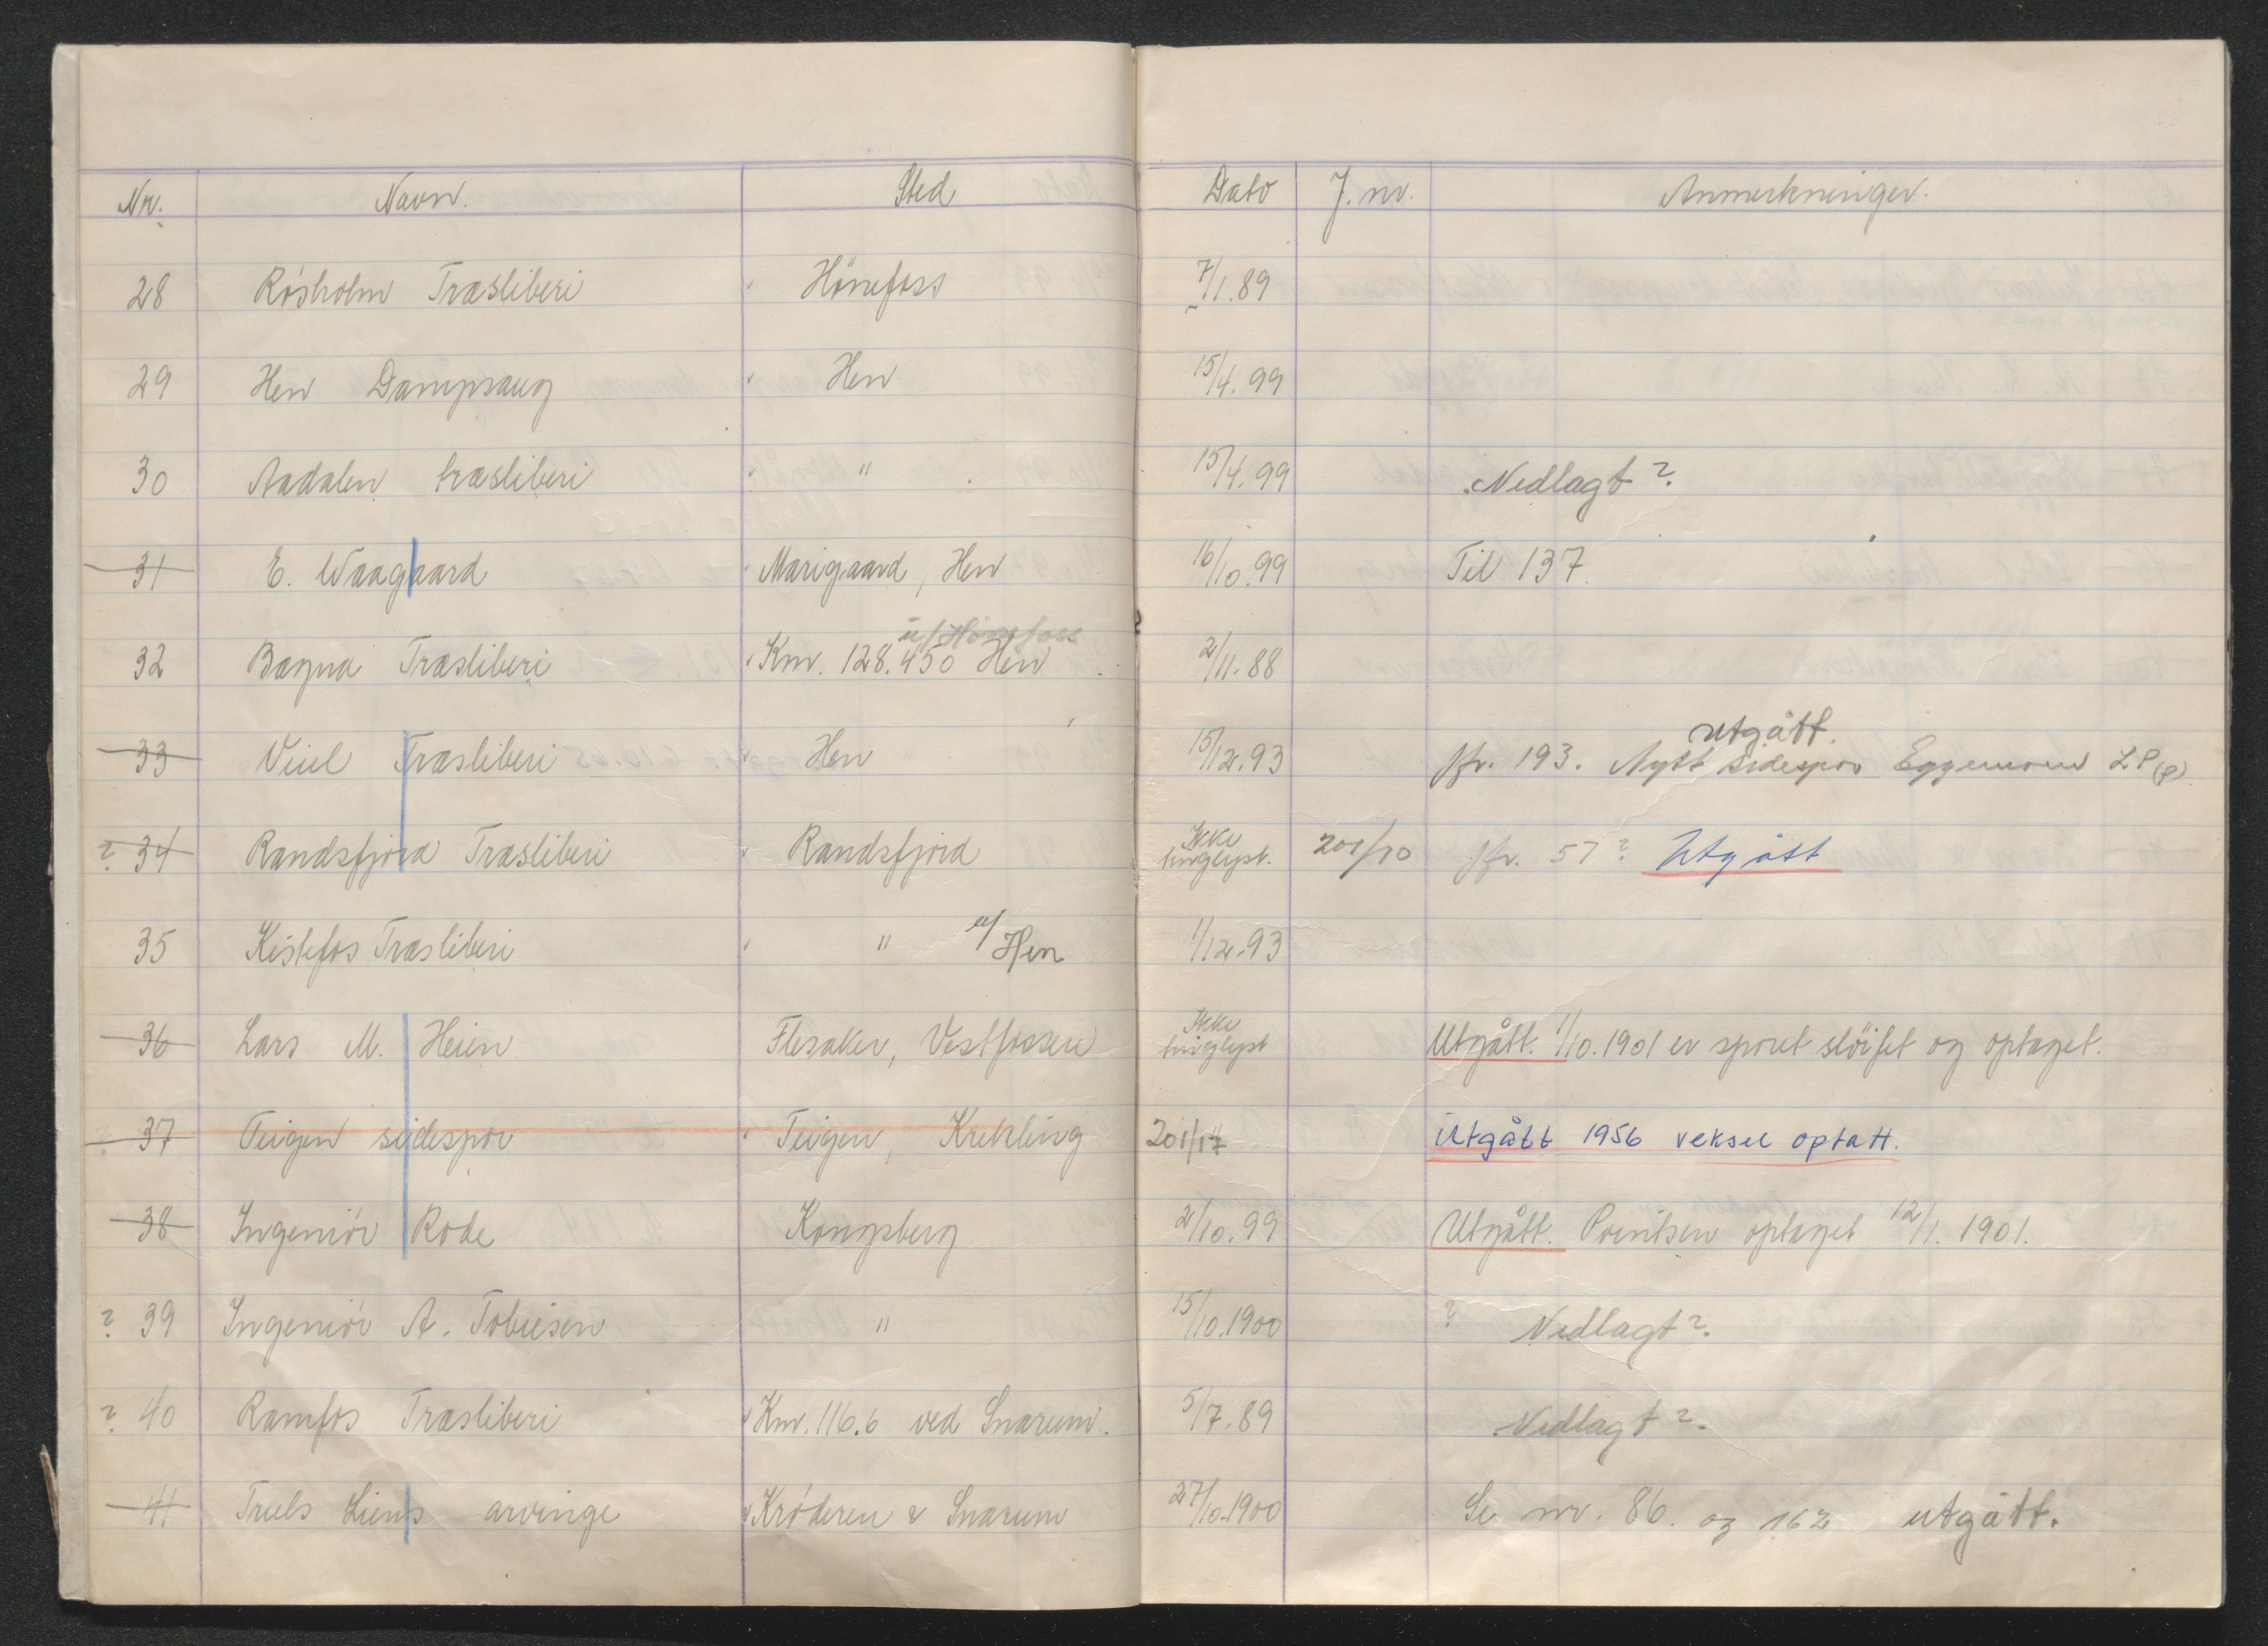 Nr. Navn. Sted Dato J. nr. Anmerkninger.
28 Rösholm Træsliberi Hönefoss 7/1.89
29 Hen Dampsaug Hen 15/4.99
30 Aadalen træsliberi " 15/4.99 Nedlagt?
31 E. Waagaard Marigaard, Hen 16/10.99 Til 137.
u/Hönefoss
32 Bægna Træsliberi Km. 128.450 Hen 2/11.88
utgått.
33 Viul Træsliberi Hen 15/12.93 Jfr. 193. Nytt sidespor Eggemoen L.P.(?)
? 34 Randsfjord Træsliberi Randsfjord Ikke tinglyst. 201/10 Jfr. 57? Utgått
35 Kistefos Træsliberi " u/Hen 1/12.93
36 Lars M. Heien Flesaker, Vestfossen Ikke tinglyst Utgått. 1/10.1901 er sporet slöifet og optaget.
37 Teigen sidespor Teigen, Krekling 201/17 Utgått 1956 veksel optatt.
38 Ingeniör Rode Kongsberg 2/10.99 Utgått. Penitsen optaget 12/1.1901.
? 39 Ingeniör A. Tobiesen " 15/10.1900 ? Nedlagt?
? 40 Ramfos Træsliberi Km. 116.6 ved Snarum. 5/7.89 Nedlagt?
41 Truls Liens arvinge Krøderen & Snarum 27/10.1900 Se nr. 86. og 162 utgått.